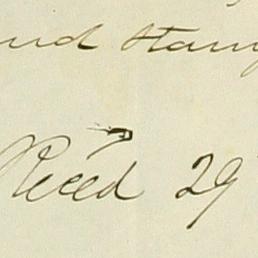 and stamp
Recd 29